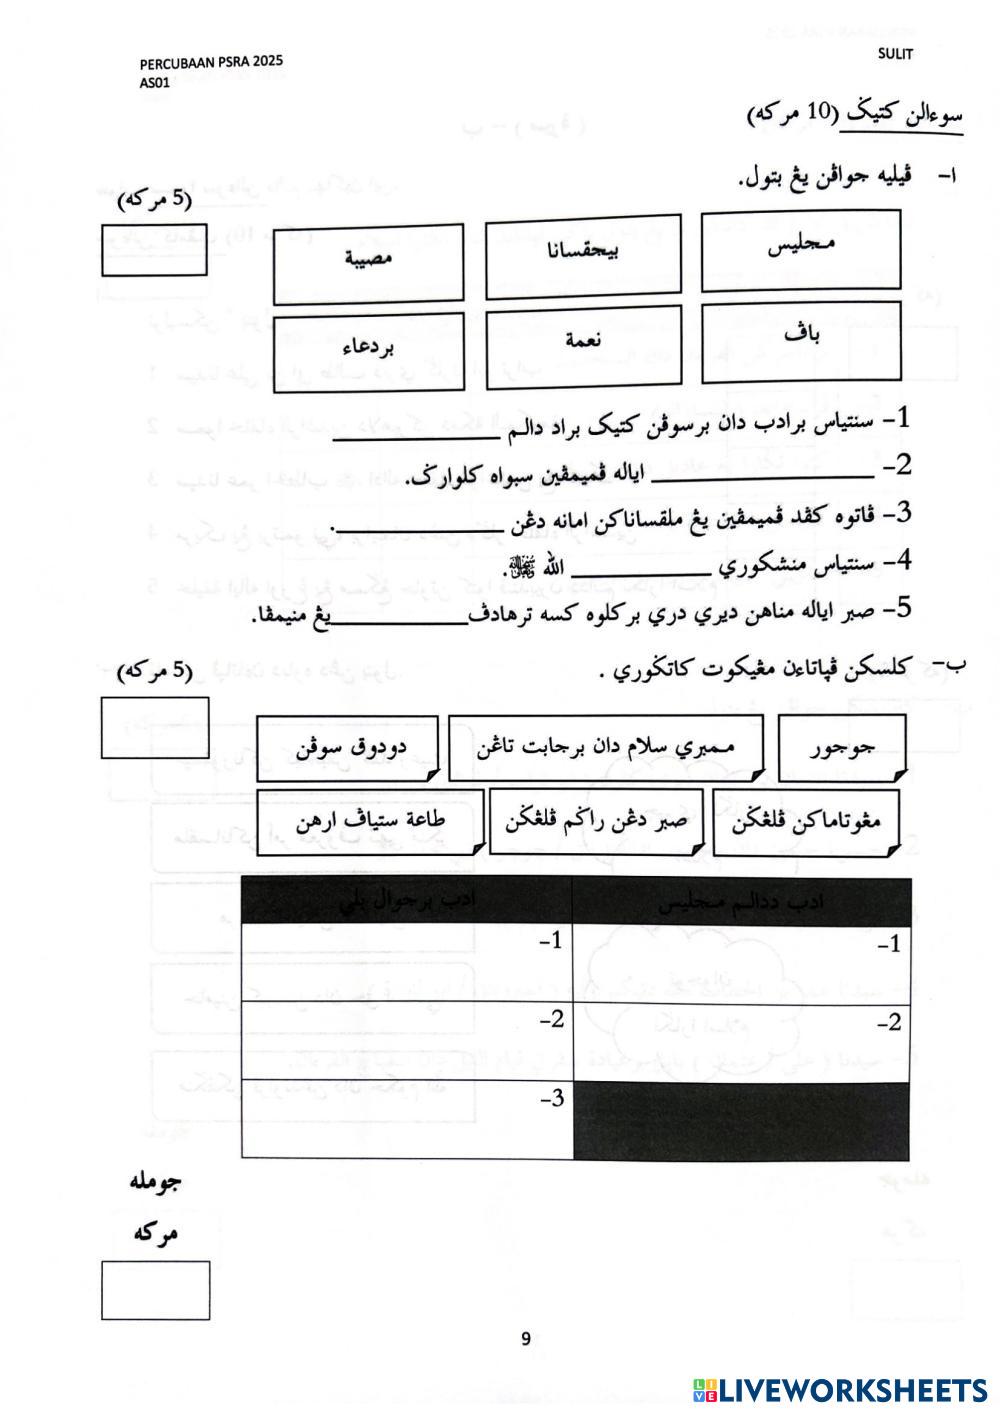 PERCUBAAN PSRA 2025
SULIT
AS01
سوءالن كتيݢ (10 مركه)
ا- ڤيليه جواڤن يڠ بتول.
(5 مركه)
مجليس
بيجقسانا
مصيبة
باڤ
نعمة
بردعاء
1- سنتياس برادب دان برسوڤن كتيک براد دالم ____________
2- ________________ اياله ڤميمڤين سبواه كلوارݢ.
3- ڤاتوه كڤد ڤميمڤين يڠ ملقساناكن امانه دڠن ____________.
4- سنتياس منشكوري __________ الله ﷻ.
5- صبر اياله مناهن ديري دري بركلوه كسه ترهادڤ __________ يڠ منيمڤا.
ب- كلسكن ڤياتاءن مڠيكوت كاتݢوري .
(5 مركه)
جوجور
ممبري سلام دان برجابت تاڠن
دودوق سوڤن
مڠوتاماكن ڤلڠݢن
صبر دڠن راݢم ڤلڠݢن
طاعة ستياڤ ارهن
ادب ددالم مجليس
ادب برجوال بلي
1-
1-
2-
2-
3-
جومله
مركه
9
LIVEWORKSHEETS